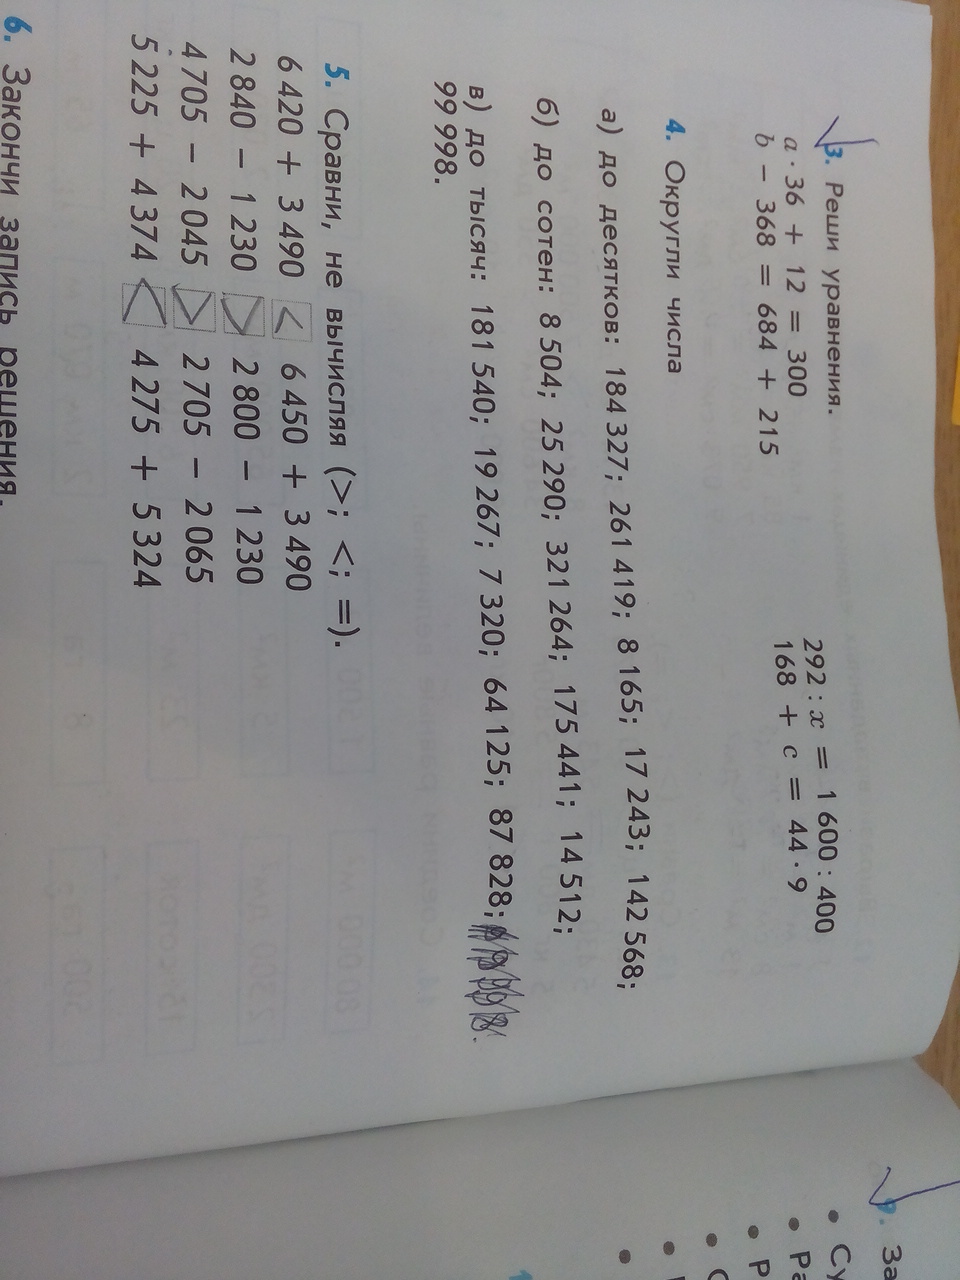 3. Реши уравнения.
a · 36 + 12 = 300
292 : x = 1 600 : 400
b − 368 = 684 + 215
168 + c = 44 · 9
4. Округли числа
а) до десятков: 184 327; 261 419; 8 165; 17 243; 142 568;
б) до сотен: 8 504; 25 290; 321 264; 175 441; 14 512;
в) до тысяч: 181 540; 19 267; 7 320; 64 125; 87 828;
99 998.
5. Сравни, не вычисляя (>; <; =).
6 420 + 3 490 < 6 450 + 3 490
2 840 − 1 230 > 2 800 − 1 230
4 705 − 2 045 > 2 705 − 2 065
5 225 + 4 374 < 4 275 + 5 324
6. Закончи запись решения.
9. За
• Су
• Ра
• Р